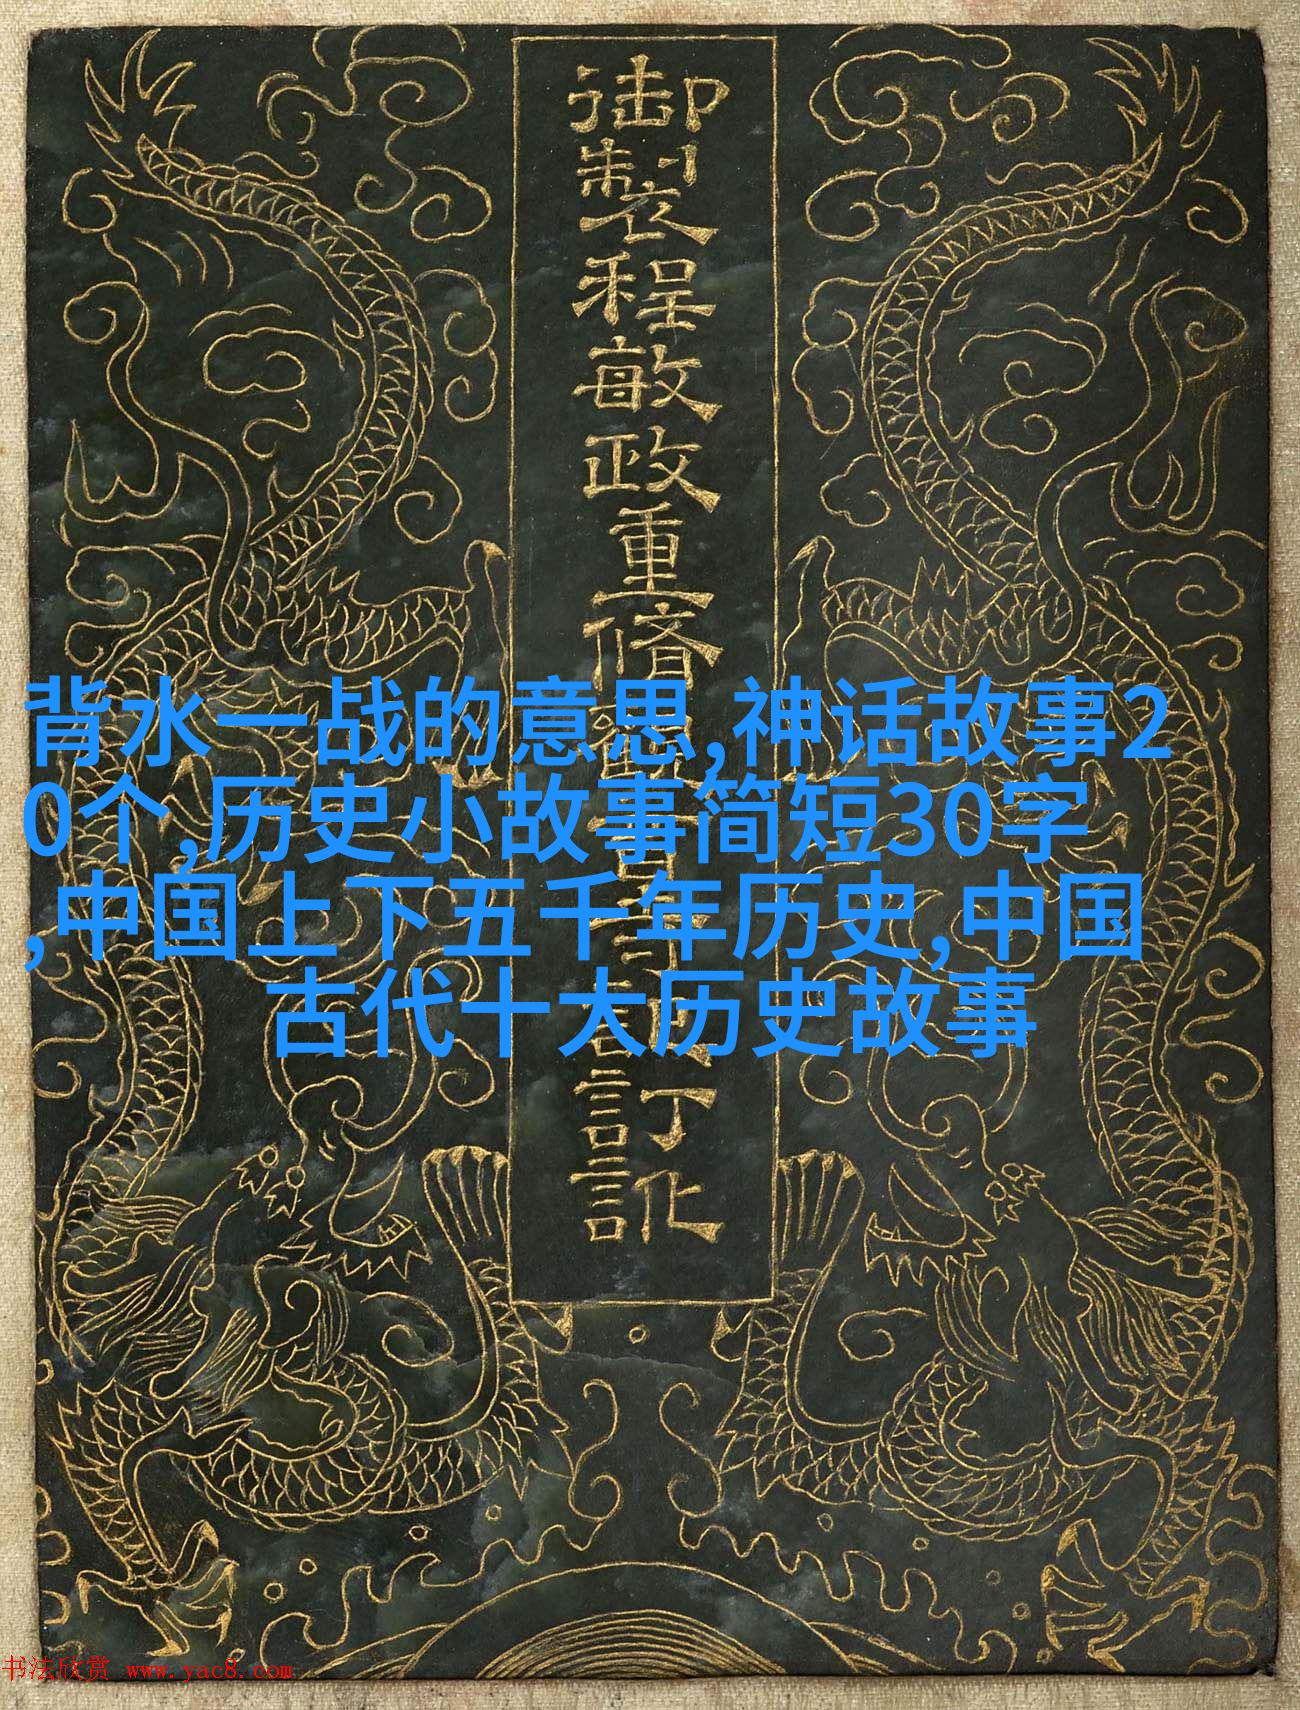 御製程敏政重脩
訂訛
背水一战的意思,神话故事2
0个,历史小故事简短30字
,中国上下五千年历史,中国
古代十大历史故事
书法欣赏 www.yac8.com